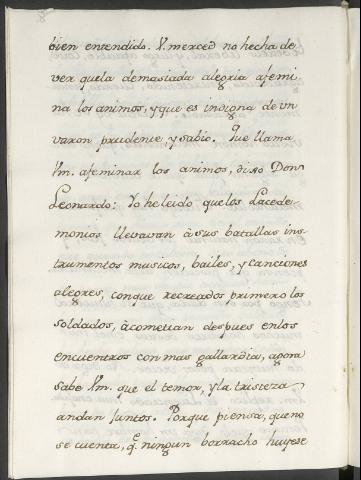 bien entendido. V. merced no hecha de
ver que la demasiada alegria afemi
na los animos, y que es indigna de vn
varon prudente, y sabio. Que llama
Vm. afeminar los animos, dixo Don
Leonardo: Yo he leido que los Lacede
monios llevavan à sus batallas ins-
trumentos musicos, bailes, y canciones
alegres, con que recreados primero los
soldados, acometian despues en los
encuentros con mas gallardia, agora
sabe Vm. que el temor, y la tristeza
andan juntos. Porque piensa, que no
se cuenta, q̃. ningun borracho huyese